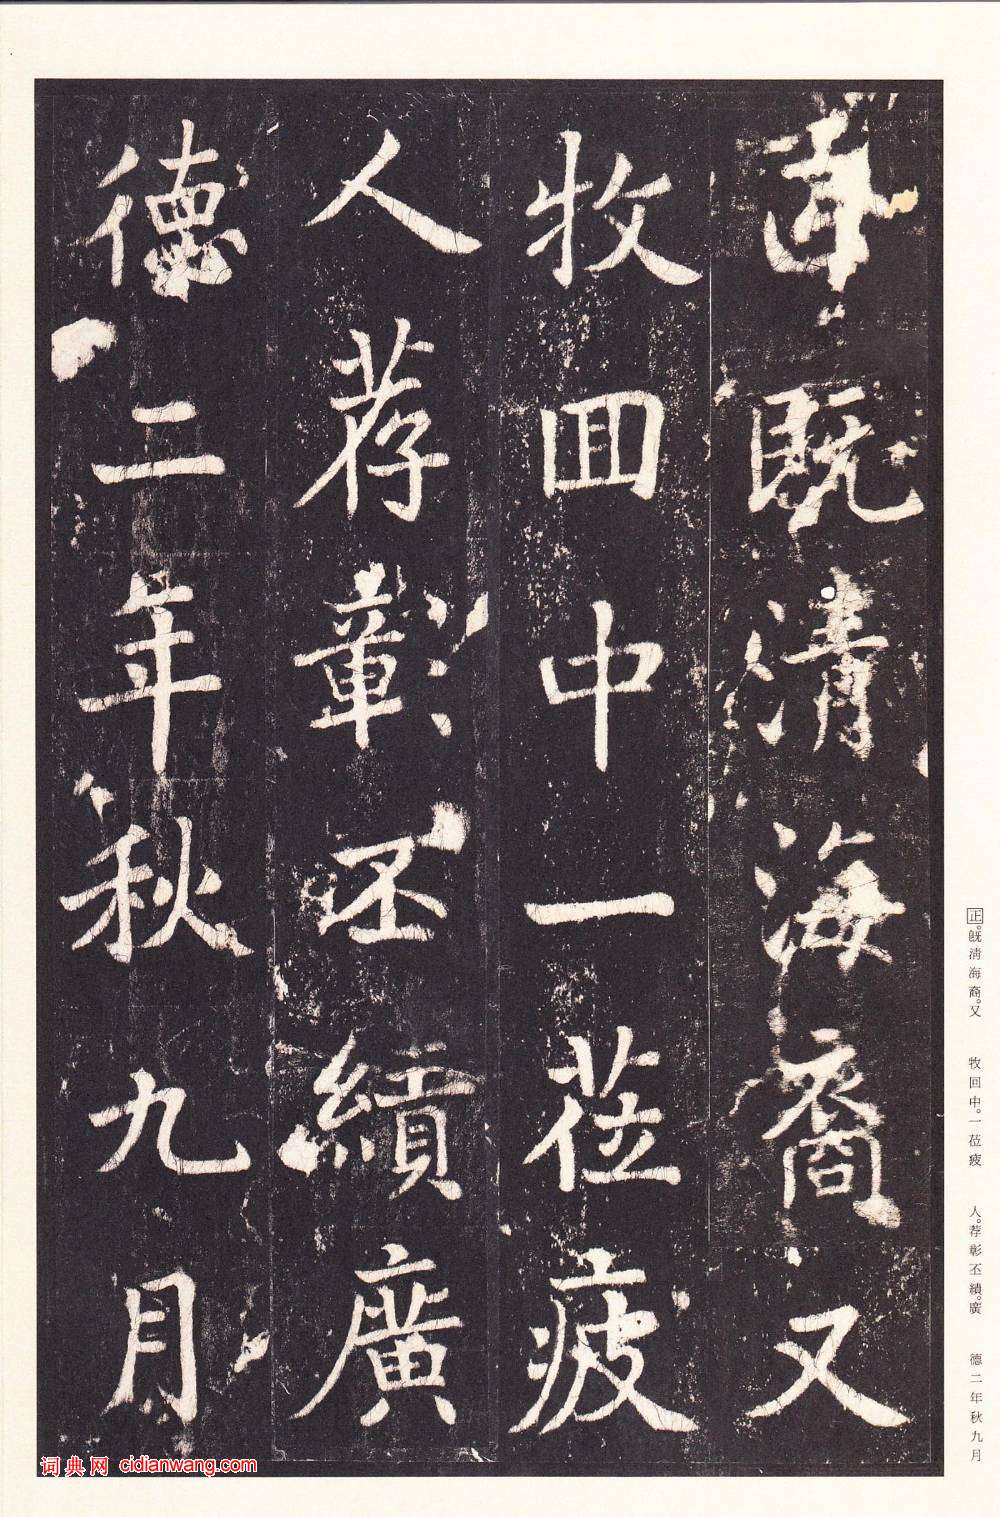 既清海裔又
牧回中一莅疲
人荐彰丕績廣
德二年秋九月
正。既清海裔。又　牧回中。一莅疲　人。荐彰丕績。廣　德二年秋九月
词典网 cidianwang.com